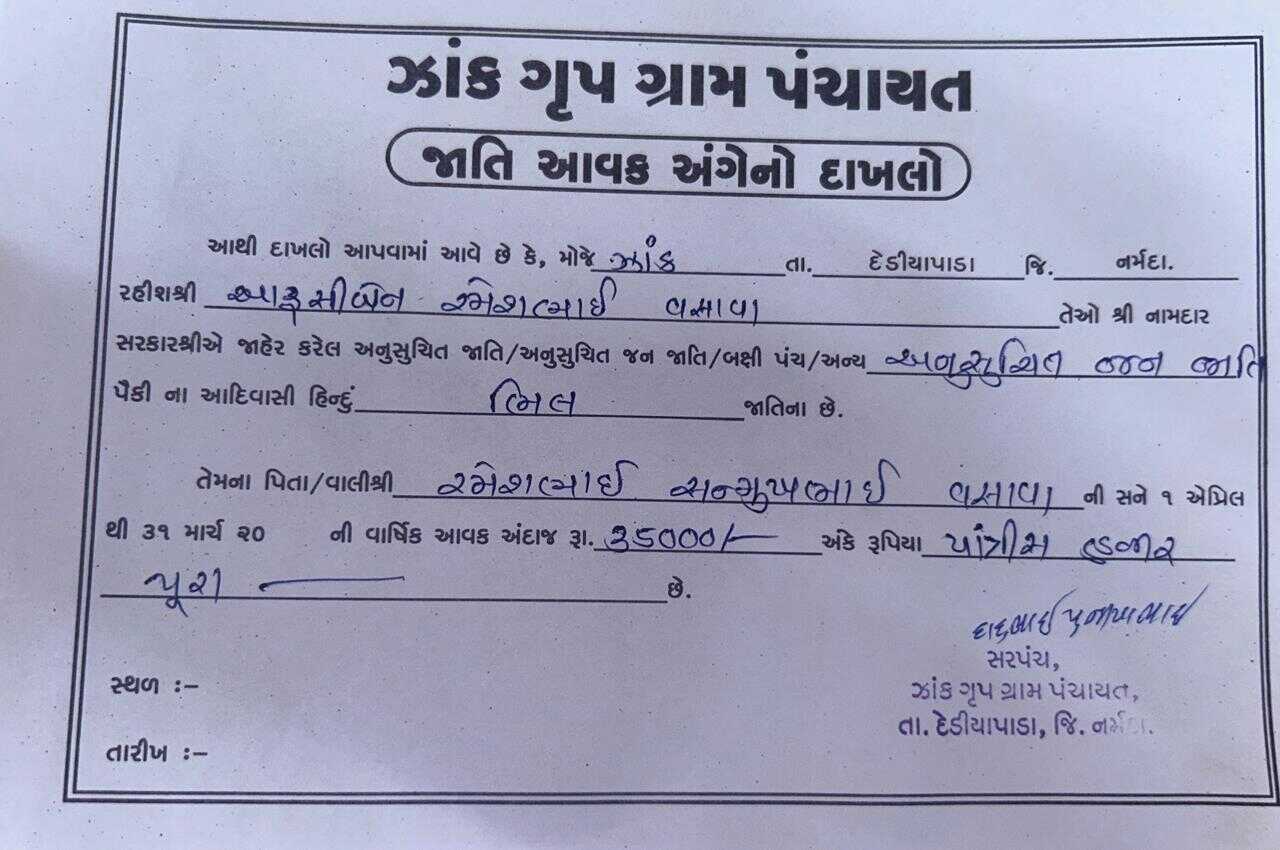 ઝાંક ગૃપ ગ્રામ પંચાયત
જાતિ આવક અંગેનો દાખલો
આથી દાખલો આપવામાં આવે છે કે, મોજે ઝાંક તા. દેડીયાપાડા જિ. નર્મદા.
રહીશશ્રી રમેશભાઈ વસાવા તેઓ શ્રી નામદાર
સરકારશ્રીએ જાહેર કરેલ અનુસુચિત જાતિ/અનુસુચિત જન જાતિ/બક્ષી પંચ/અન્ય અનુસુચિત જન જાતિ
પૈકી ના આદિવાસી હિન્દું ભિલ જાતિના છે.
તેમના પિતા/વાલીશ્રી રમેશભાઈ સન્મુખભાઈ વસાવા ની સને ૧ એપ્રિલ
થી ૩૧ માર્ચ ૨૦ ની વાર્ષિક આવક અંદાજ રૂા. 35000/- અંકે રૂપિયા પાંત્રીસ હજાર
પૂરા છે.
સરપંચ,
ઝાંક ગૃપ ગ્રામ પંચાયત,
તા. દેડીયાપાડા, જિ. નર્મદા.
સ્થળ :-
તારીખ :-